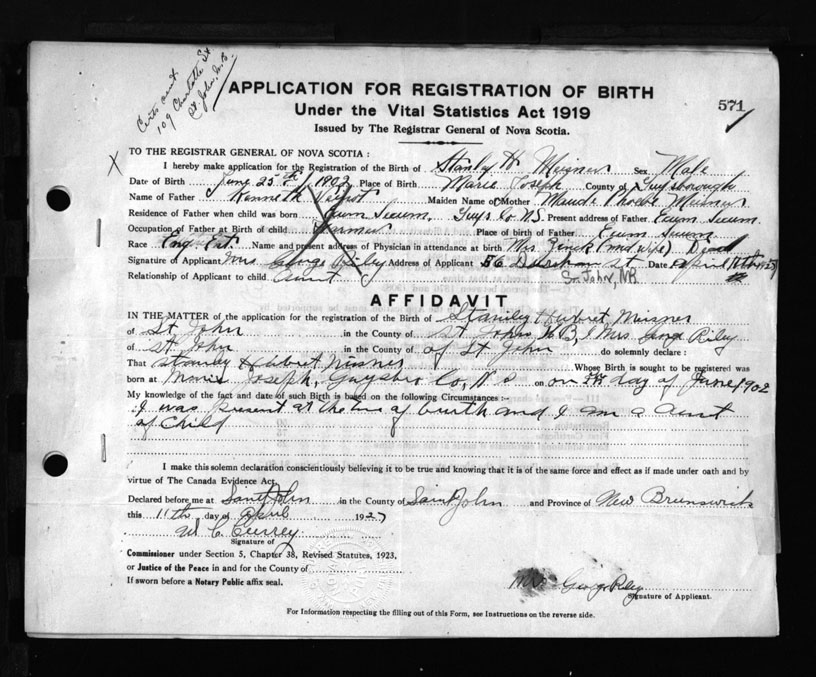 Certs sent
109 Charlotte St
St. John, N.B.
APPLICATION FOR REGISTRATION OF BIRTH
571
Under the Vital Statistics Act 1919
Issued by The Registrar General of Nova Scotia.
X
TO THE REGISTRAR GENERAL OF NOVA SCOTIA :
I hereby make application for the Registration of the Birth of Stanly H. Meisner Sex Male
Date of Birth June 25th 1902 Place of Birth Marie Joseph County of Guysborough
Name of Father Kenneth Maiden Name of Mother Maude Phoebe Meisner
Residence of Father when child was born Ecum Secum, Guys Co N.S. Present address of Father Ecum Secum
Occupation of Father at Birth of child Farmer Place of birth of Father Ecum Secum
Race Name and present address of Physician in attendance at birth Mrs (midwife) Dead
Signature of Applicant Mrs George Riley Address of Applicant 56 St Date April
Relationship of Applicant to child Aunt St. John, NB
AFFIDAVIT
IN THE MATTER of the application for the registration of the Birth of Stanley Hubret Meisner
of St. John in the County of St John N.B, I Mrs. George Riley
of St. John in the County of of St John do solemnly declare :
That Stanley Hubret Whose Birth is sought to be registered was
born at Marie Joseph, Guysbro Co, N S on day of June 1902
My knowledge of the fact and date of such Birth is based on the following Circumstances :-
I was present at the time of birth and I am a Aunt
of Child
I make this solemn declaration conscientiously believing it to be true and knowing that it is of the same force and effect as if made under oath and by
virtue of The Canada Evidence Act.
Declared before me at Saint John in the County of Saint John and Province of New Brunswick
this 11th day of April 1927
Signature of
Commissioner under Section 5, Chapter 38, Revised Statutes, 1923,
or Justice of the Peace in and for the County of
If sworn before a Notary Public affix seal.
Mrs Riley
Signature of Applicant.
For Information respecting the filling out of this Form, see Instructions on the reverse side.